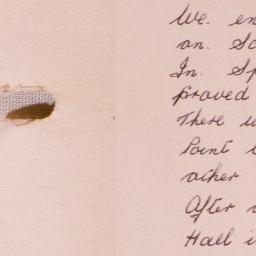 We. en
on. Sa
In. Sp
proved
There w
Point
acher
After
Hall i